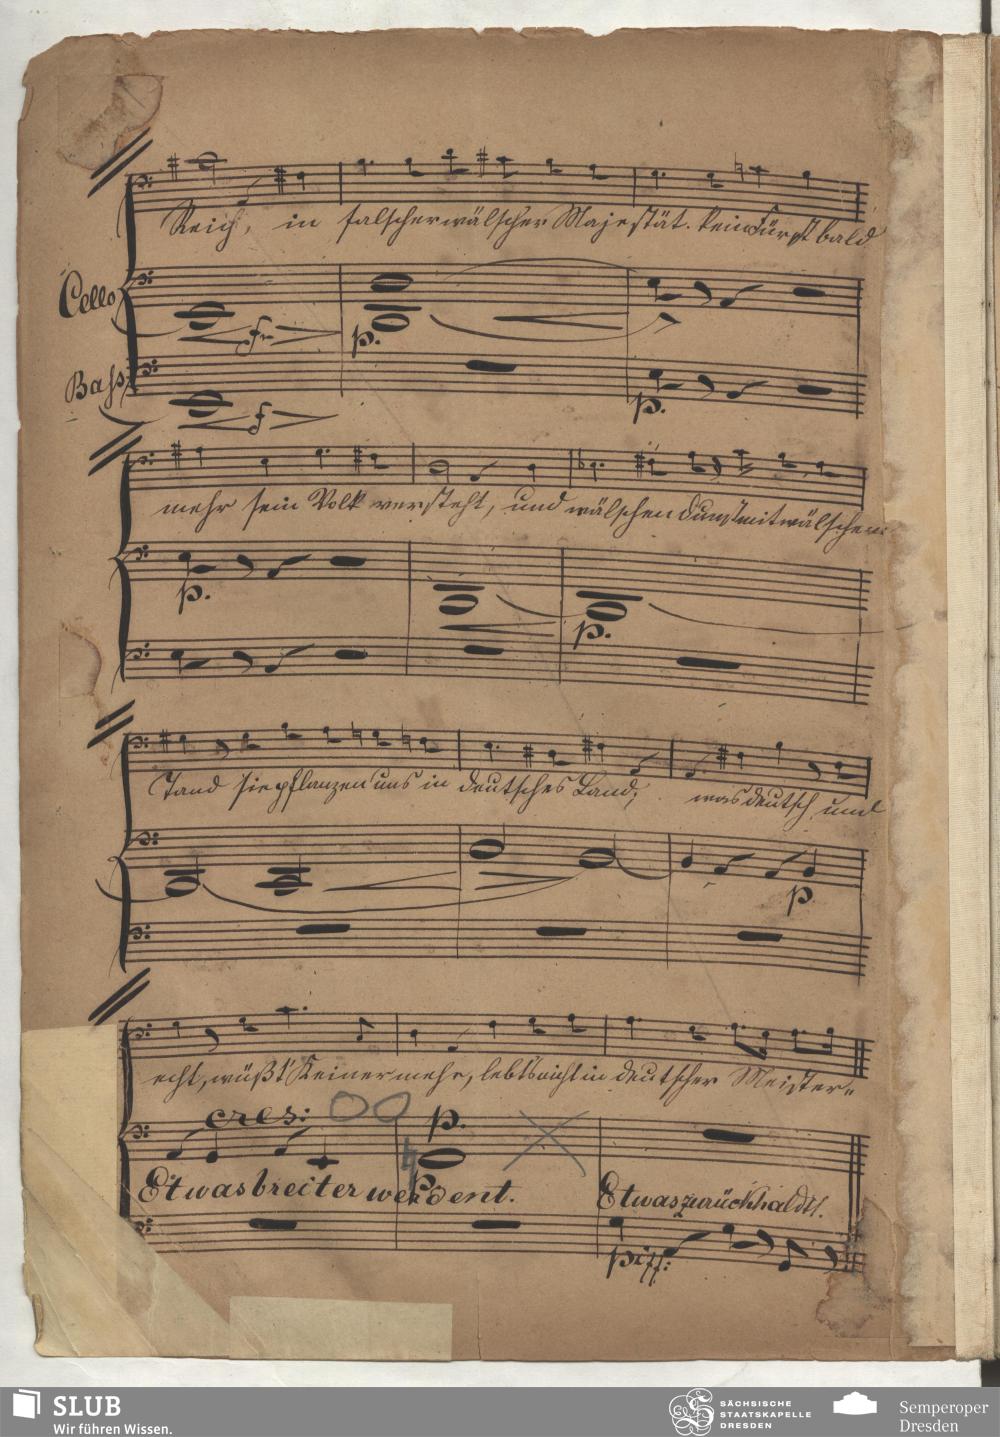 Reich, in falscher wälscher Majestät. kein Fürst bald
Cello
f
p.
Bass
f
p.
mehr sein Volk versteht, und wälschen Dunst mit wälschem
p.
p.
Tand sie pflanzen uns in deutsches Land; was deutsch und
p
echt, wüßt Keiner mehr, lebts nicht in deutscher Meister-
cres:
p.
Etwas breiter werdent.
Etwas zurückhaldt.
SLUB
Wir führen Wissen.
SÄCHSISCHE
STAATSKAPELLE
DRESDEN
Semperoper
Dresden